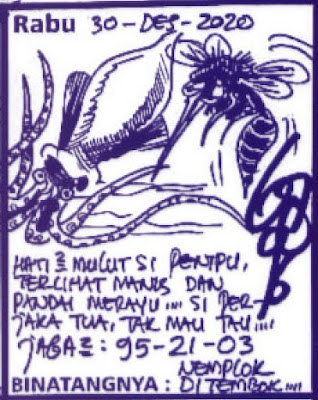 Rabu 30-DES-2020
HATI2 MULUT SI PENIPU,
TERLIHAT MANIS DAN
PANDAI MERAYU.... SI PER-
JAKA TUA, TAK MAU TAU....
TABA2 : 95-21-03
NEMPLOK
BINATANGNYA : DITEMBOK....